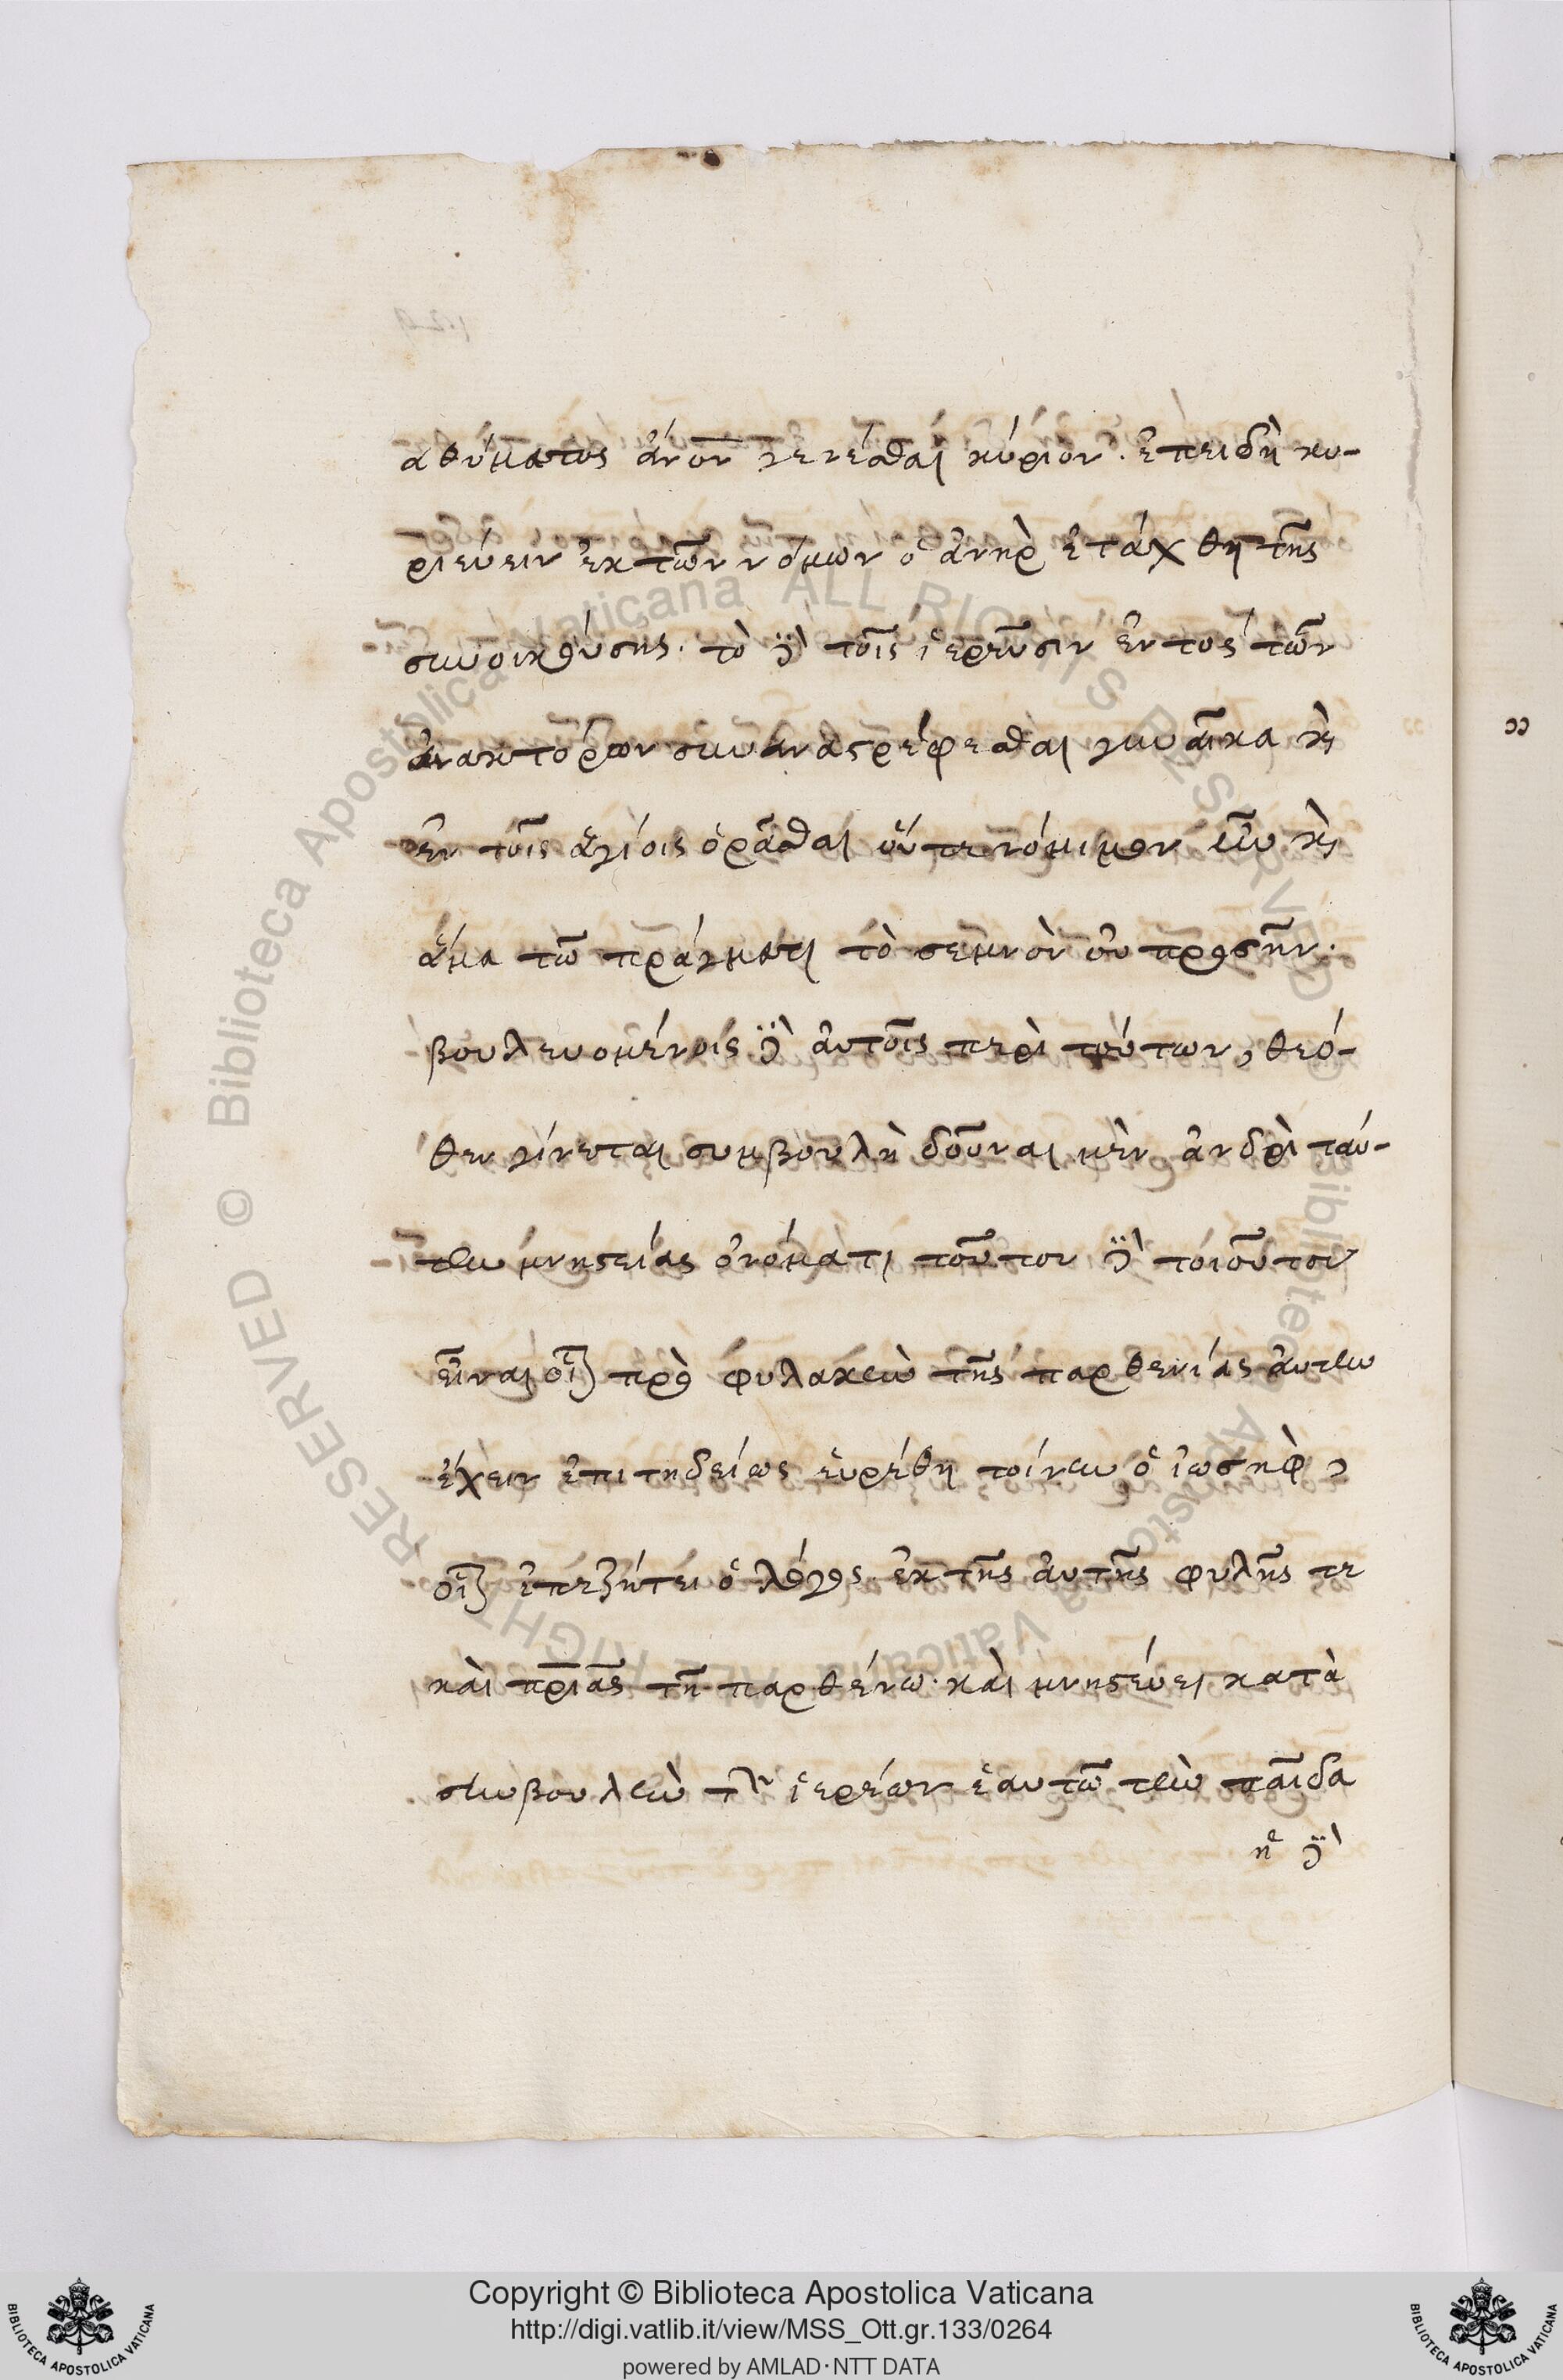 αθύματος ἄνον γενέσθαι κύριον. ἐπειδὴ κυ-
ριεύειν ἐκ τῶν νόμων ὁ ἀνὴρ ἐτάχθη τῆς
συνοικούσης. τὸ δὲ τοῖς ἱερεῦσιν ἐντος τῶν
ἀνακτόρων συναναστρέφεσθαι γυναῖκα καὶ
ἐν τοῖς ἁγίοις ὁρᾶσθαι οὔτε νόμιμον ἦν καὶ
ἅμα τῶ πράγματι τὸ σεμνὸν οὐ προσῆν.
βουλευομένοις δὲ αὐτοῖς περὶ τούτων, θεό-
θεν γίνεται συμβουλὴ δοῦναι μὲν ἀνδρὶ ταύ-
την μνηστείας ὀνόματι τοῦτον δὲ τοιοῦτον
εἶναι οἷον πρὸς φυλακὴν τῆς παρθενίας αὐτὴν
ἔχειν ἐπιτηδείως εὑρέθη τοίνυν ὁ ἰωσὴφ,
οἷον ἐπεζήτει ὁ λόγος. ἐκ τῆς αὐτῆς φυλῆς τε
καὶ πριᾶς τῆ παρθένω. καὶ μνηστεύει κατὰ
συμβουλὴν τῶν ἱερέων ἑαυτῶ τὴν παῖδα
ἡ δὲ
Copyright © Biblioteca Apostolica Vaticana
http://digi.vatlib.it/view/MSS_Ott.gr.133/0264
powered by AMLAD·NTT DATA